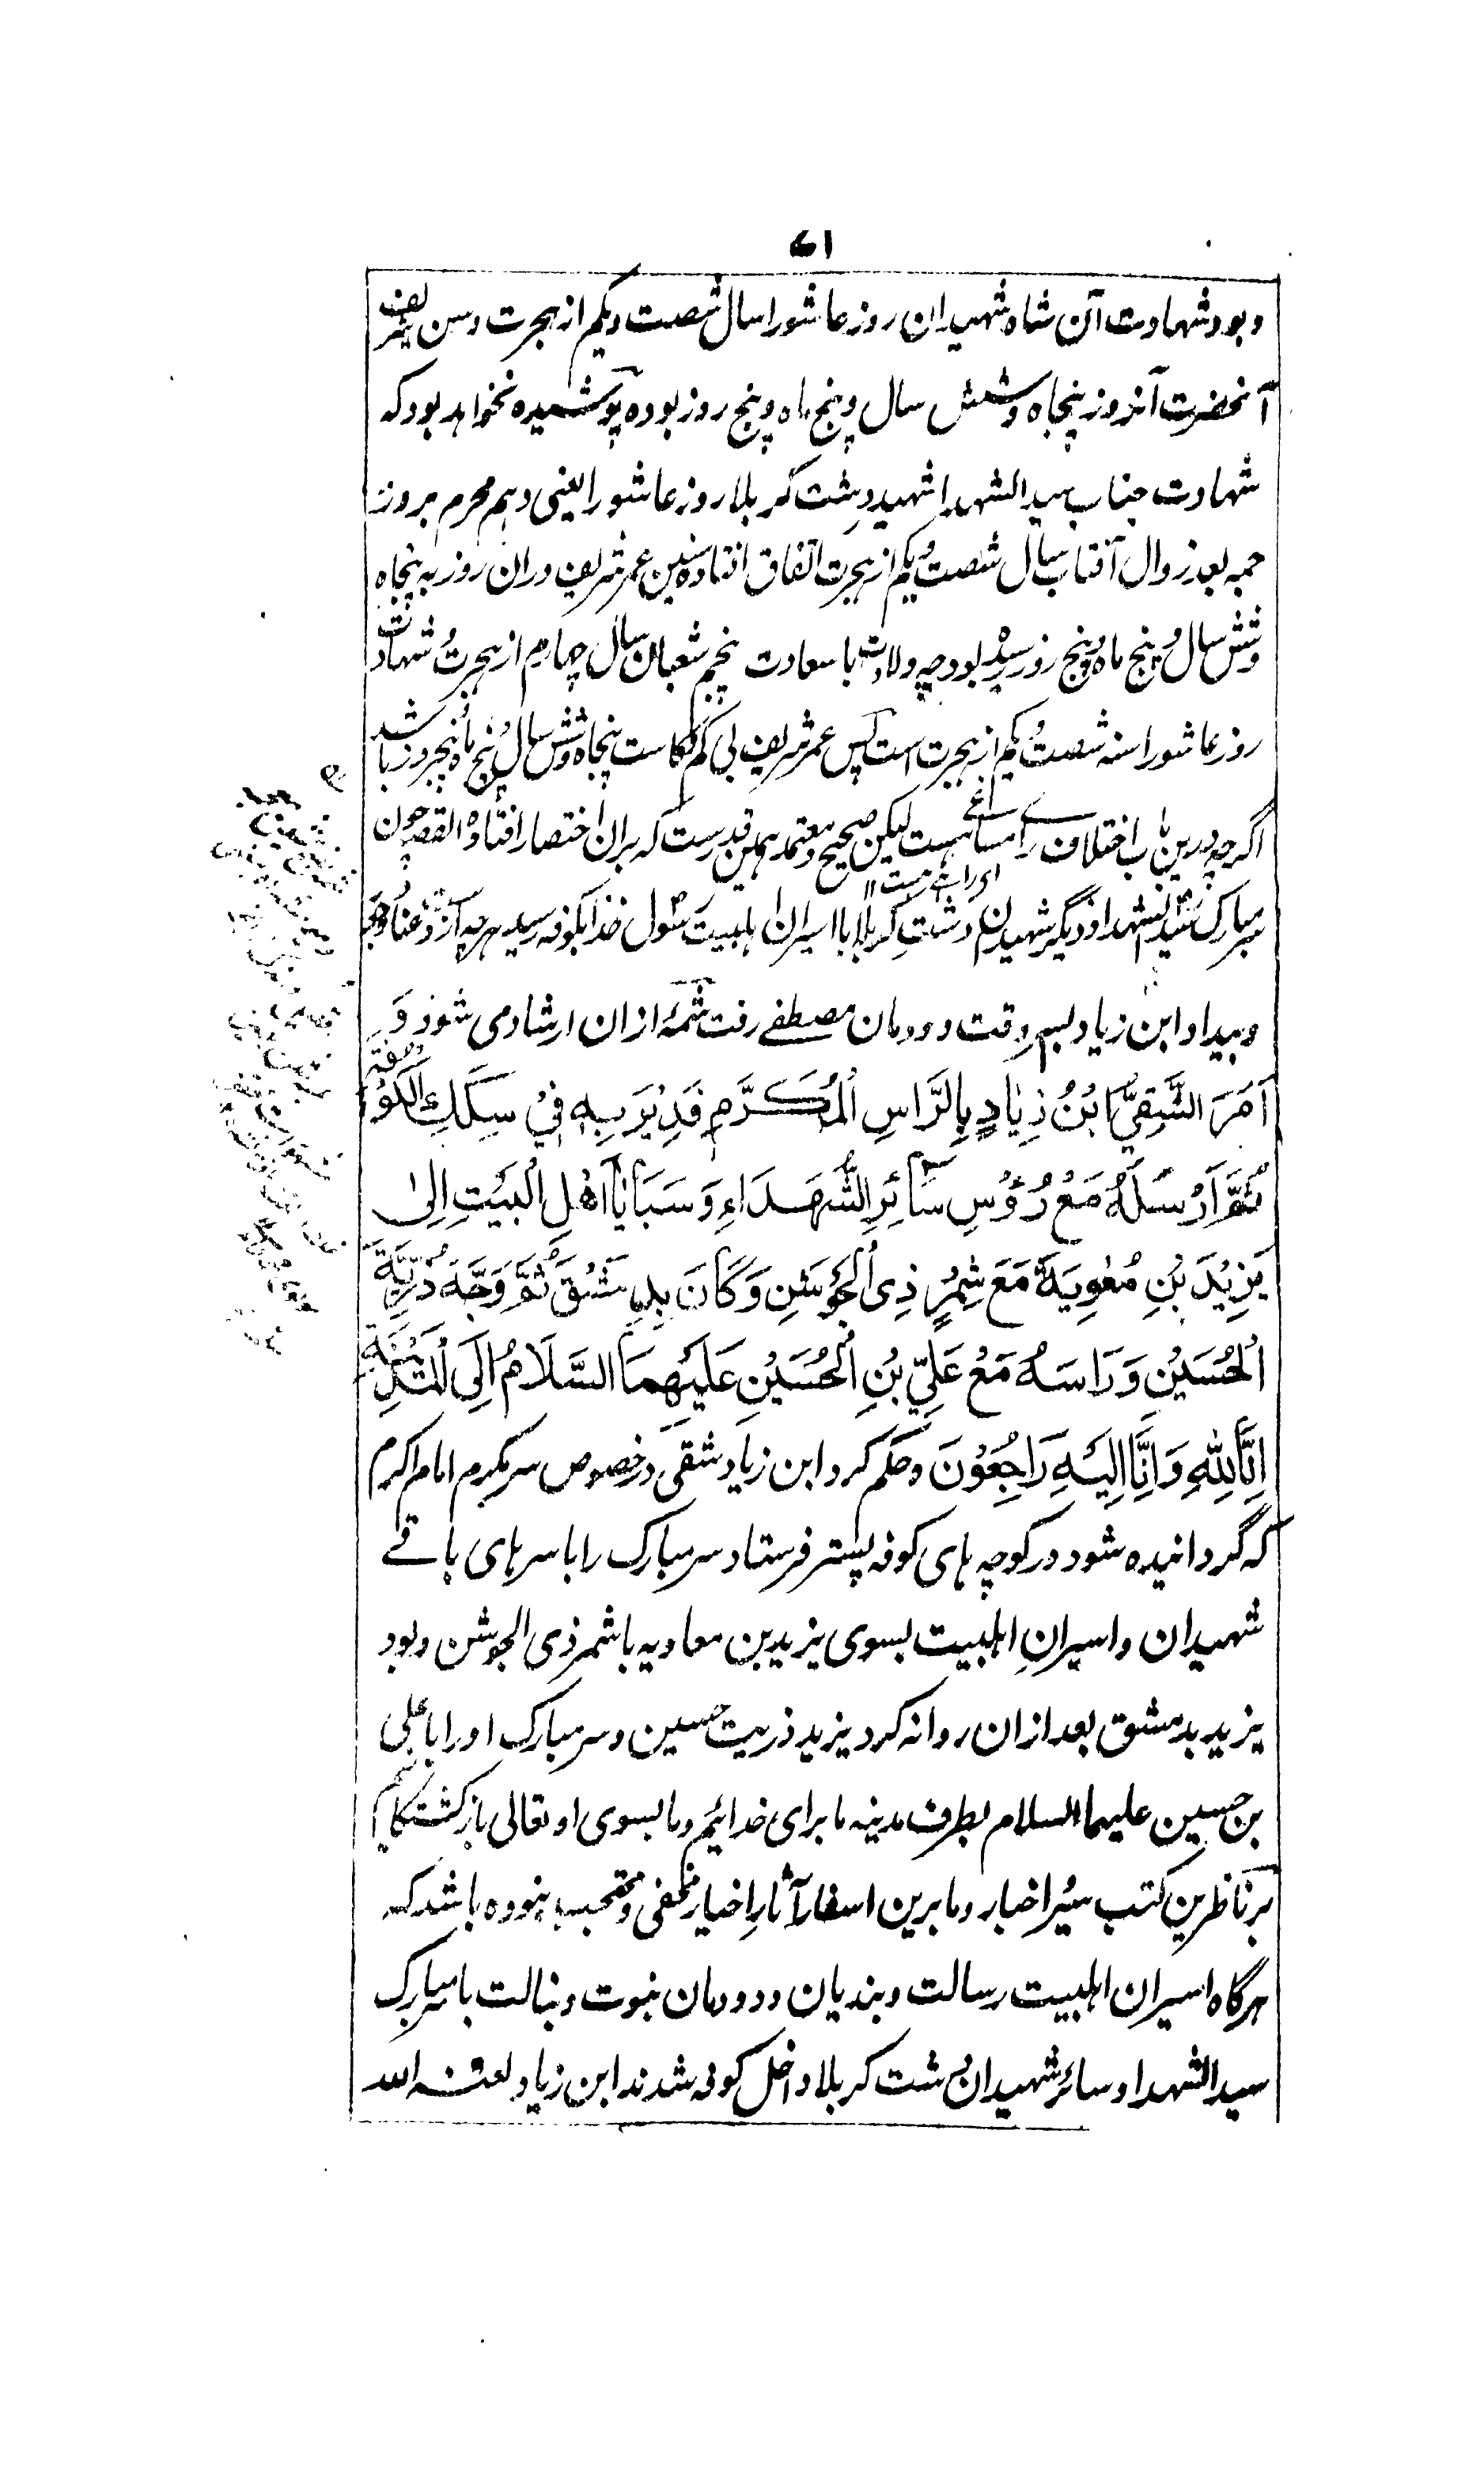 ۷۱
و بود شهادت آن شاه شهیدان روز عاشورا سال شصت و یکم از هجرت و سن شریف
آنحضرت آنروز پنجاه و شش سال و پنج ماه و پنج روز بوده پوشیده نخواهد بود که
شهادت جناب سید الشهدا شهید دشت کربلا روز عاشورا یعنی دهم محرم بروز
جمعه بعد زوال آفتاب سال شصت و یکم از هجرت اتفاق افتاده سنین عمر شریف دران روز به پنجاه
و شش سال و پنج ماه و پنج روز رسیده بود چه ولادت با سعادت پنجم شعبان سال چهارم از هجرت و شهادت
روز عاشورا سنه شصت و یکم از هجرت است پس عمر شریف بی کم و کاست پنجاه و شش سال و پنج ماه و پنجروز باشد
اگرچه درین باب اختلاف را مساغی هست لیکن صحیح و معتمد همین قدرست که بران اختصار افتاده القصه چون
سر مبارک سید الشهدا و دیگر شهیدان دشت کربلا با اسیران اهلبیت رسول خدا بکوفه رسید هر چه از
و بیداد ابن زیاد بسر وقت دودمان مصطفے رفت شمهٔ ازان ارشاد می شود وَ
اَمَرَ الشَّقِیُّ ابْنُ زِیَادٍ بِالرَّاسِ الْمُکَرَّمِ فَدِیْرَ بِهٖ فِیْ سِکَكِ الْکُوْفَةِ
ثُمَّ اَرْسَلَهٗ مَعْ رُؤُسِ سَآئِرِ الشُّهَدَاءِ وَسَبَایَا اَهْلِ الْبَیْتِ اِلٰی
یَزِیْدَ بْنِ مُعٰوِیَةَ مَعَ شِمْرٍ ذِی الْجَوْشَنِ وَکَانَ بِدِمَشْقَ ثُمَّ وَجَّهَ ذُرِّیَّةَ
الْحُسَیْنِ وَرَاسَهٗ مَعْ عَلِیِّ بْنِ الْحُسَیْنِ عَلَیْهِمَا السَّلَامُ اِلَی الْمَدِیْنَةِ
اِنَّا لِلّٰهِ وَاِنَّا اِلَیْهِ رَاجِعُوْنَ و حکم کرد ابن زیاد شقی در خصوص سر مکرم امام اکرم
که گردانیده شود در کوچه های کوفه پستر فرستاد سر مبارک را با سرهای باقے
شهیدان و اسیرانِ اهلبیت بسوی یزید بن معاویه با شمر ذی الجوشن و بود
یزید بدمشق بعد ازان روانه کرد یزید ذریت حسین و سر مبارک او را با علی
بن حسین علیهما السلام بطرف مدینه ما برای خدائیم و ما بسوی او تعالی بازگشتگانیم
بر ناظرین کتب سیر اخبار و ماهرین اسفار آثارِ اخیار مخفی و محتجب نبوده باشد که
هرگاه اسیران اهلبیت رسالت و بندیان دودمان نبوت و نبالت با سر مبارک
سید الشهدا و سائر شهیدان دشت کربلا داخل کوفه شدند ابن زیاد لعنه الله